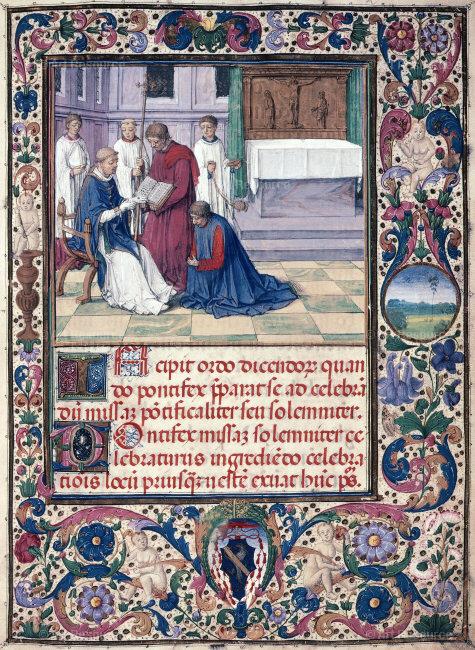 INcipit ordo dicendoꝝ quan
do pontifex p̄parat se ad celebrā
dū missaꝫ pōtificaliter seu solemniter.
Pontifex missaꝫ solemniter ce
lebraturus ingrediēdo celebra
tiōis locū priusqꝫ vestē exuat huc p̄s.